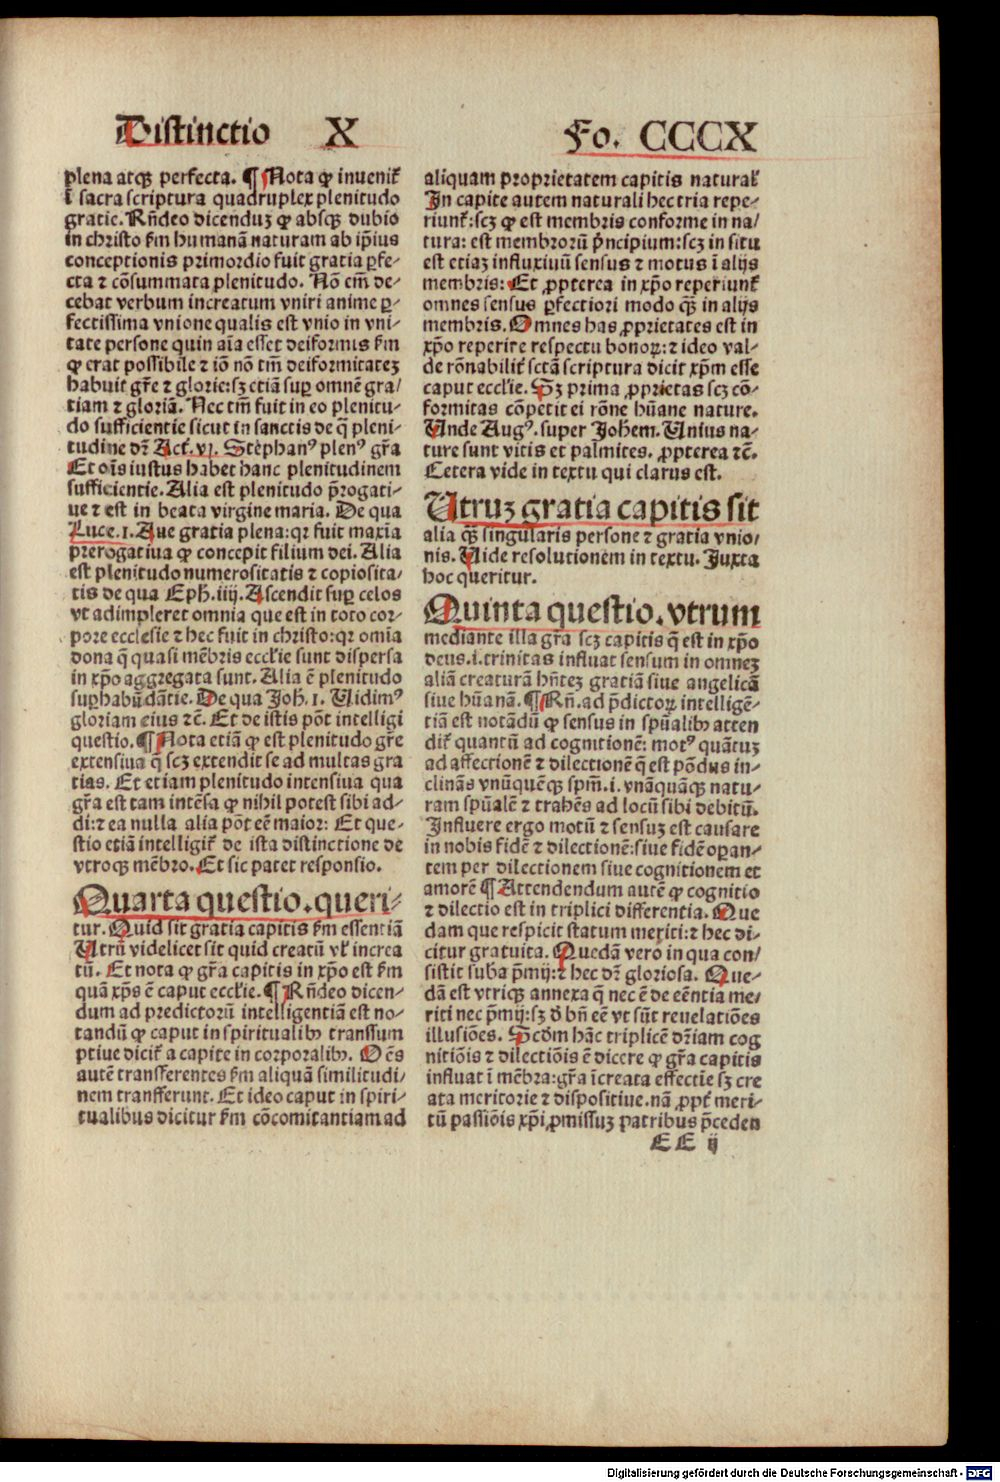 Distinctio X Fo. CCCX
plena atqꝫ perfecta. ¶ Nota ꝙ inuenit᷑
ī sacra scriptura quadruplex plenitudo
gratie. Rñdeo dicenduꝫ ꝙ absqꝫ dubio
in christo ẜm humanã naturam ab ip̃ius
conceptionis primordio fuit gratia ꝑfe-
cta ⁊ cõsummata plenitudo. Nõ em̃ de-
cebat verbum increatum vniri anime ꝑ-
fectissima vnione qualis est vnio in vni-
tate persone quin aĩa esset deiformis ẜm
ꝙ erat possibile ⁊ iõ nõ tm̃ deiformitateꝫ
habuit gr̃e ⁊ glorie: sꝫ etiã suꝑ omnẽ gra/
tiam ⁊ gloriã. Nec tm̃ fuit in eo plenitu-
do sufficientie sicut in sanctis de q̃ pleni-
tudine dr̃ Act. vj. Stephanꝰ plenꝰ gr̃a
Et oĩs iustus habet hanc plenitudinem
sufficientie. Alia est plenitudo p̃rogati-
ue ⁊ est in beata virgine maria. De qua
Luce. ı. Aue gratia plena: qꝛ fuit maxĩa
prerogatiua ꝙ concepit filium dei. Alia
est plenitudo numerositatis ⁊ copiosita/
tis de qua Eph. iiij. Ascendit suꝑ celos
vt adimpleret omnia que est in toto cor-
pore ecclesie ⁊ hec fuit in christo: qꝛ omia
dona q̃ quasi mẽbris eccƚie sunt dispersa
in xp̃o aggregata sunt. Alia ẽ plenitudo
suꝑhabũdãtie. De qua Joh. ı. Uidimꝰ
gloriam eius ⁊c̃. Et de istis põt intelligi
questio. ¶ Nota etiã ꝙ est plenitudo gr̃e
extensiua q̃ scꝫ extendit se ad multas gra
tias. Et etiam plenitudo intensiua qua
gr̃a est tam intẽsa ꝙ nihil potest sibi ad-
di: ⁊ ea nulla alia põt eẽ maior: Et que-
stio etiã intelligit᷑ de ista distinctione de
vtroqꝫ mẽbro. Et sic patet responsio.
Quarta questio. queri-
tur. Quid sit gratia capitis ẜm essentiã
Utrũ videlicet sit quid creatũ vƚ increa
tũ. Et nota ꝙ gr̃a capitis in xp̃o est ẜm
quã xp̃s ẽ caput eccƚie. ¶ Rñdeo dicen-
dum ad predictorũ intelligentiã est no-
tandũ ꝙ caput in spiritualibꝫ transsum
ptiue dicit᷑ a capite in corporalibꝫ. Oẽs
autẽ transferentes ẜm aliquã similitudi/
nem transferunt. Et ideo caput in spiri-
tualibus dicitur ẜm cõcomitantiam ad
aliquam proprietatem capitis naturaƚ
In capite autem naturali hec tria repe-
riunt᷑: scꝫ ꝙ est membris conforme in na/
tura: est membrorũ p̃ncipium: scꝫ in situ
est etiaꝫ influxiuũ sensus ⁊ motus ĩ alijs
membris: Et ꝓpterea in xp̃o reperiunt᷑
omnes sensus ꝑfectiori modo qꝫ̃ in alijs
membris. Omnes has ꝓprietates est in
xp̃o reperire respectu bonoꝝ: ⁊ ideo val-
de rõnabilit᷑ sctã scriptura dicit xp̃m esse
caput eccƚie. Sꝫ prima ꝓprietas scꝫ cõ-
formitas cõpetit ei rõne hũane nature.
Unde Augꝰ. super Johem. Unius na-
ture sunt vitis et palmites. ꝓpterea ⁊c̃.
Cetera vide in textu qui clarus est.
Utruꝫ gratia capitis sit
alia qꝫ̃ singularis persone ⁊ gratia vnio/
nis. Uide resolutionem in textu. Juxta
hoc queritur.
Quinta questio. vtrum
mediante illa gr̃a scꝫ capitis q̃ est in xp̃o
deus. i. trinitas influat sensum in omneꝫ
aliã creaturã hñteꝫ gratiã siue angelicã
siue hũanã. ¶ Rñ. ad p̃dictoꝝ intelligẽ-
tiã est notãdũ ꝙ sensus in spũalibꝫ atten
dit᷑ quantũ ad cognitionẽ: motꝰ quãtuꝫ
ad affectionẽ ⁊ dilectionẽ q̃ est põdus in-
clinãs vnũquẽqꝫ spm̃. i. vnãquãqꝫ natu-
ram spũalẽ ⁊ trahẽs ad locũ sibi debitũ.
Influere ergo motũ ⁊ sensuꝫ est causare
in nobis fidẽ ⁊ dilectionẽ: siue fidẽ oꝑan-
tem per dilectionem siue cognitionem et
amorẽ ¶ Attendendum autẽ ꝙ cognitio
⁊ dilectio est in triplici differentia. Que
dam que respicit statum meriti: ⁊ hec di-
citur gratuita. Quedã vero in qua con/
sistit suba p̃mij: ⁊ hec dr̃ gloriosa. Que-
dã est vtriqꝫ annexa q̃ nec ẽ de eẽntia me/
riti nec p̃mij: sꝫ ð bñ eẽ vt sũt reuelatiões
illusiões. Scðm hãc triplicẽ dr̃iam cog
nitiõis ⁊ dilectiõis ẽ dicere ꝙ gr̃a capitis
influat ĩ mẽbra: gr̃a ĩcreata effectiẽ sꝫ cre
ata meritorie ⁊ dispositiue. nã ꝓpt᷑ meri-
tũ passiõis xp̃i ꝓmissuꝫ patribus p̃ceden
EE ij
Digitalisierung gefördert durch die Deutsche Forschungsgemeinschaft - DFG